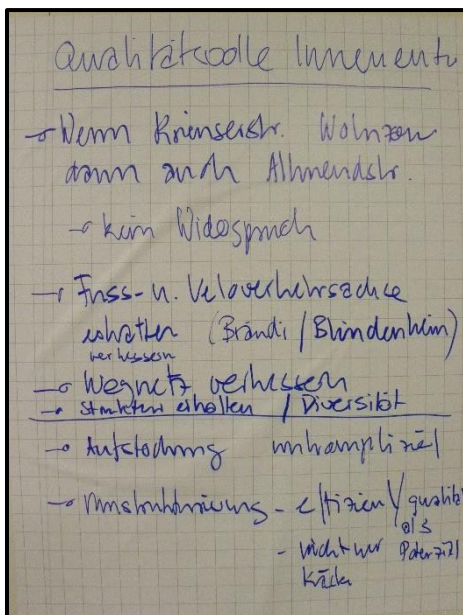 Qualitätsvolle Innenentw
→ Wenn Krienserstr. Wohnzon
dann auch Allmendstr.
→ kein Widerspruch
→ Fuss- u. Veloverkehrsachse
erhalten (Brändi / Blindenheim)
verbessern
→ Wegnetz verbessern
→ Strukturen erhalten / Diversität
→ Aufstockung unkompliziert
→ Umstrukturierung - effizient / qualität
als
- nicht nur Potenzial